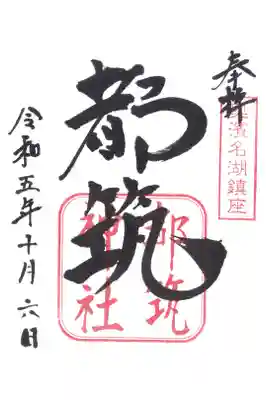 奉拝
濱名湖鎮座
都筑
都筑
神社
令和五年十月六日